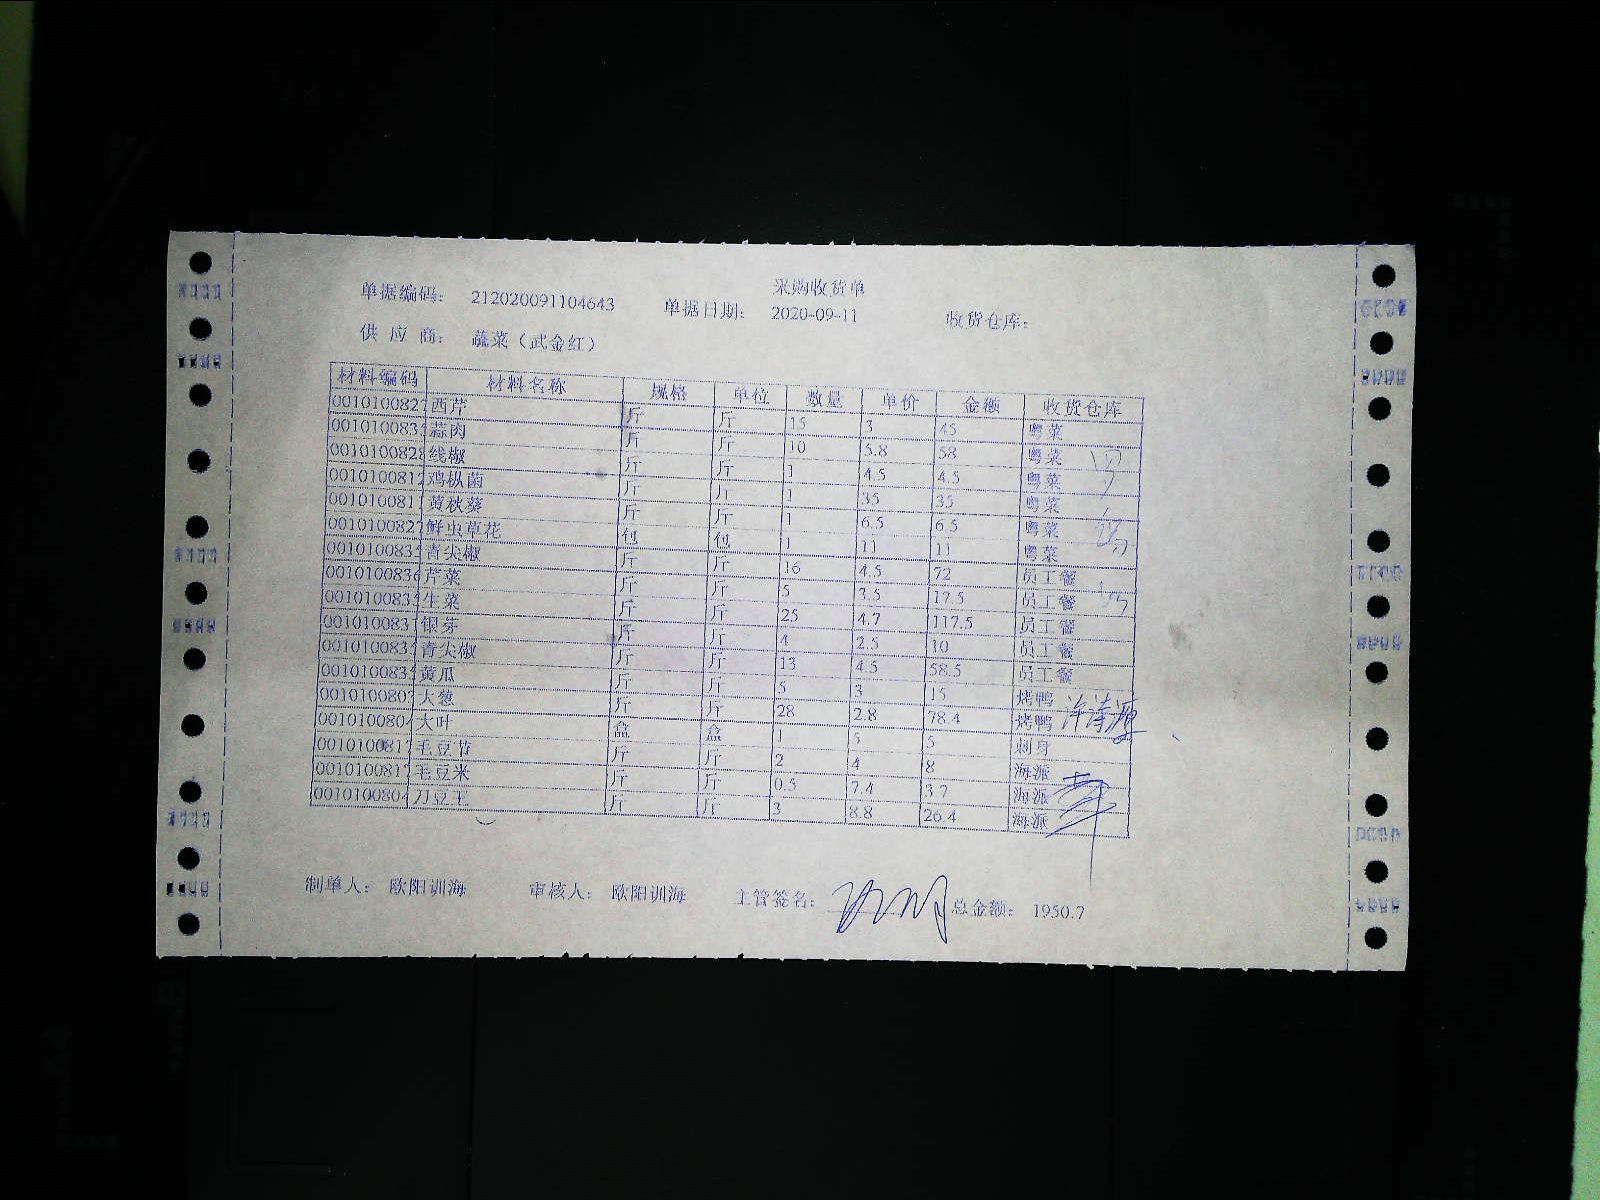 采购收货单
单据编码： 212020091104643 单据日期： 2020-09-11 收货仓库：
供 应 商： 蔬菜（武金红）
材料编码 材料名称 规格 单位 数量 单价 金额 收货仓库
0010100827 西芹 斤 斤 15 3 45 粤菜
001010083 蒜肉 斤 斤 10 5.8 58 粤菜
0010100828 线椒 斤 斤 1 4.5 4.5 粤菜
001010081 鸡枞菌 斤 斤 1 35 35 粤菜
001010081 黄秋葵 斤 斤 1 6.5 6.5 粤菜
0010100827 鲜虫草花 包 包 1 11 11 粤菜
001010083 青尖椒 斤 斤 16 4.5 72 员工餐
0010100836 芹菜 斤 斤 5 3.5 17.5 员工餐
001010083 生菜 斤 斤 25 4.7 117.5 员工餐
001010083 银芽 斤 斤 4 2.5 10 员工餐
001010083 青尖椒 斤 斤 13 4.5 58.5 员工餐
001010083 黄瓜 斤 斤 5 3 15 烤鸭
001010080 大葱 斤 斤 28 2.8 78.4 烤鸭
001010080 大叶 盒 盒 1 5 5 刺身
001010081 毛豆节 斤 斤 2 4 8 海派
001010081 毛豆米 斤 斤 0.5 7.4 3.7 海派
001010080 刀豆王 斤 斤 3 8.8 26.4 海派
制单人： 欧阳训海 审核人： 欧阳训海 主管签名： 总金额： 1950.7